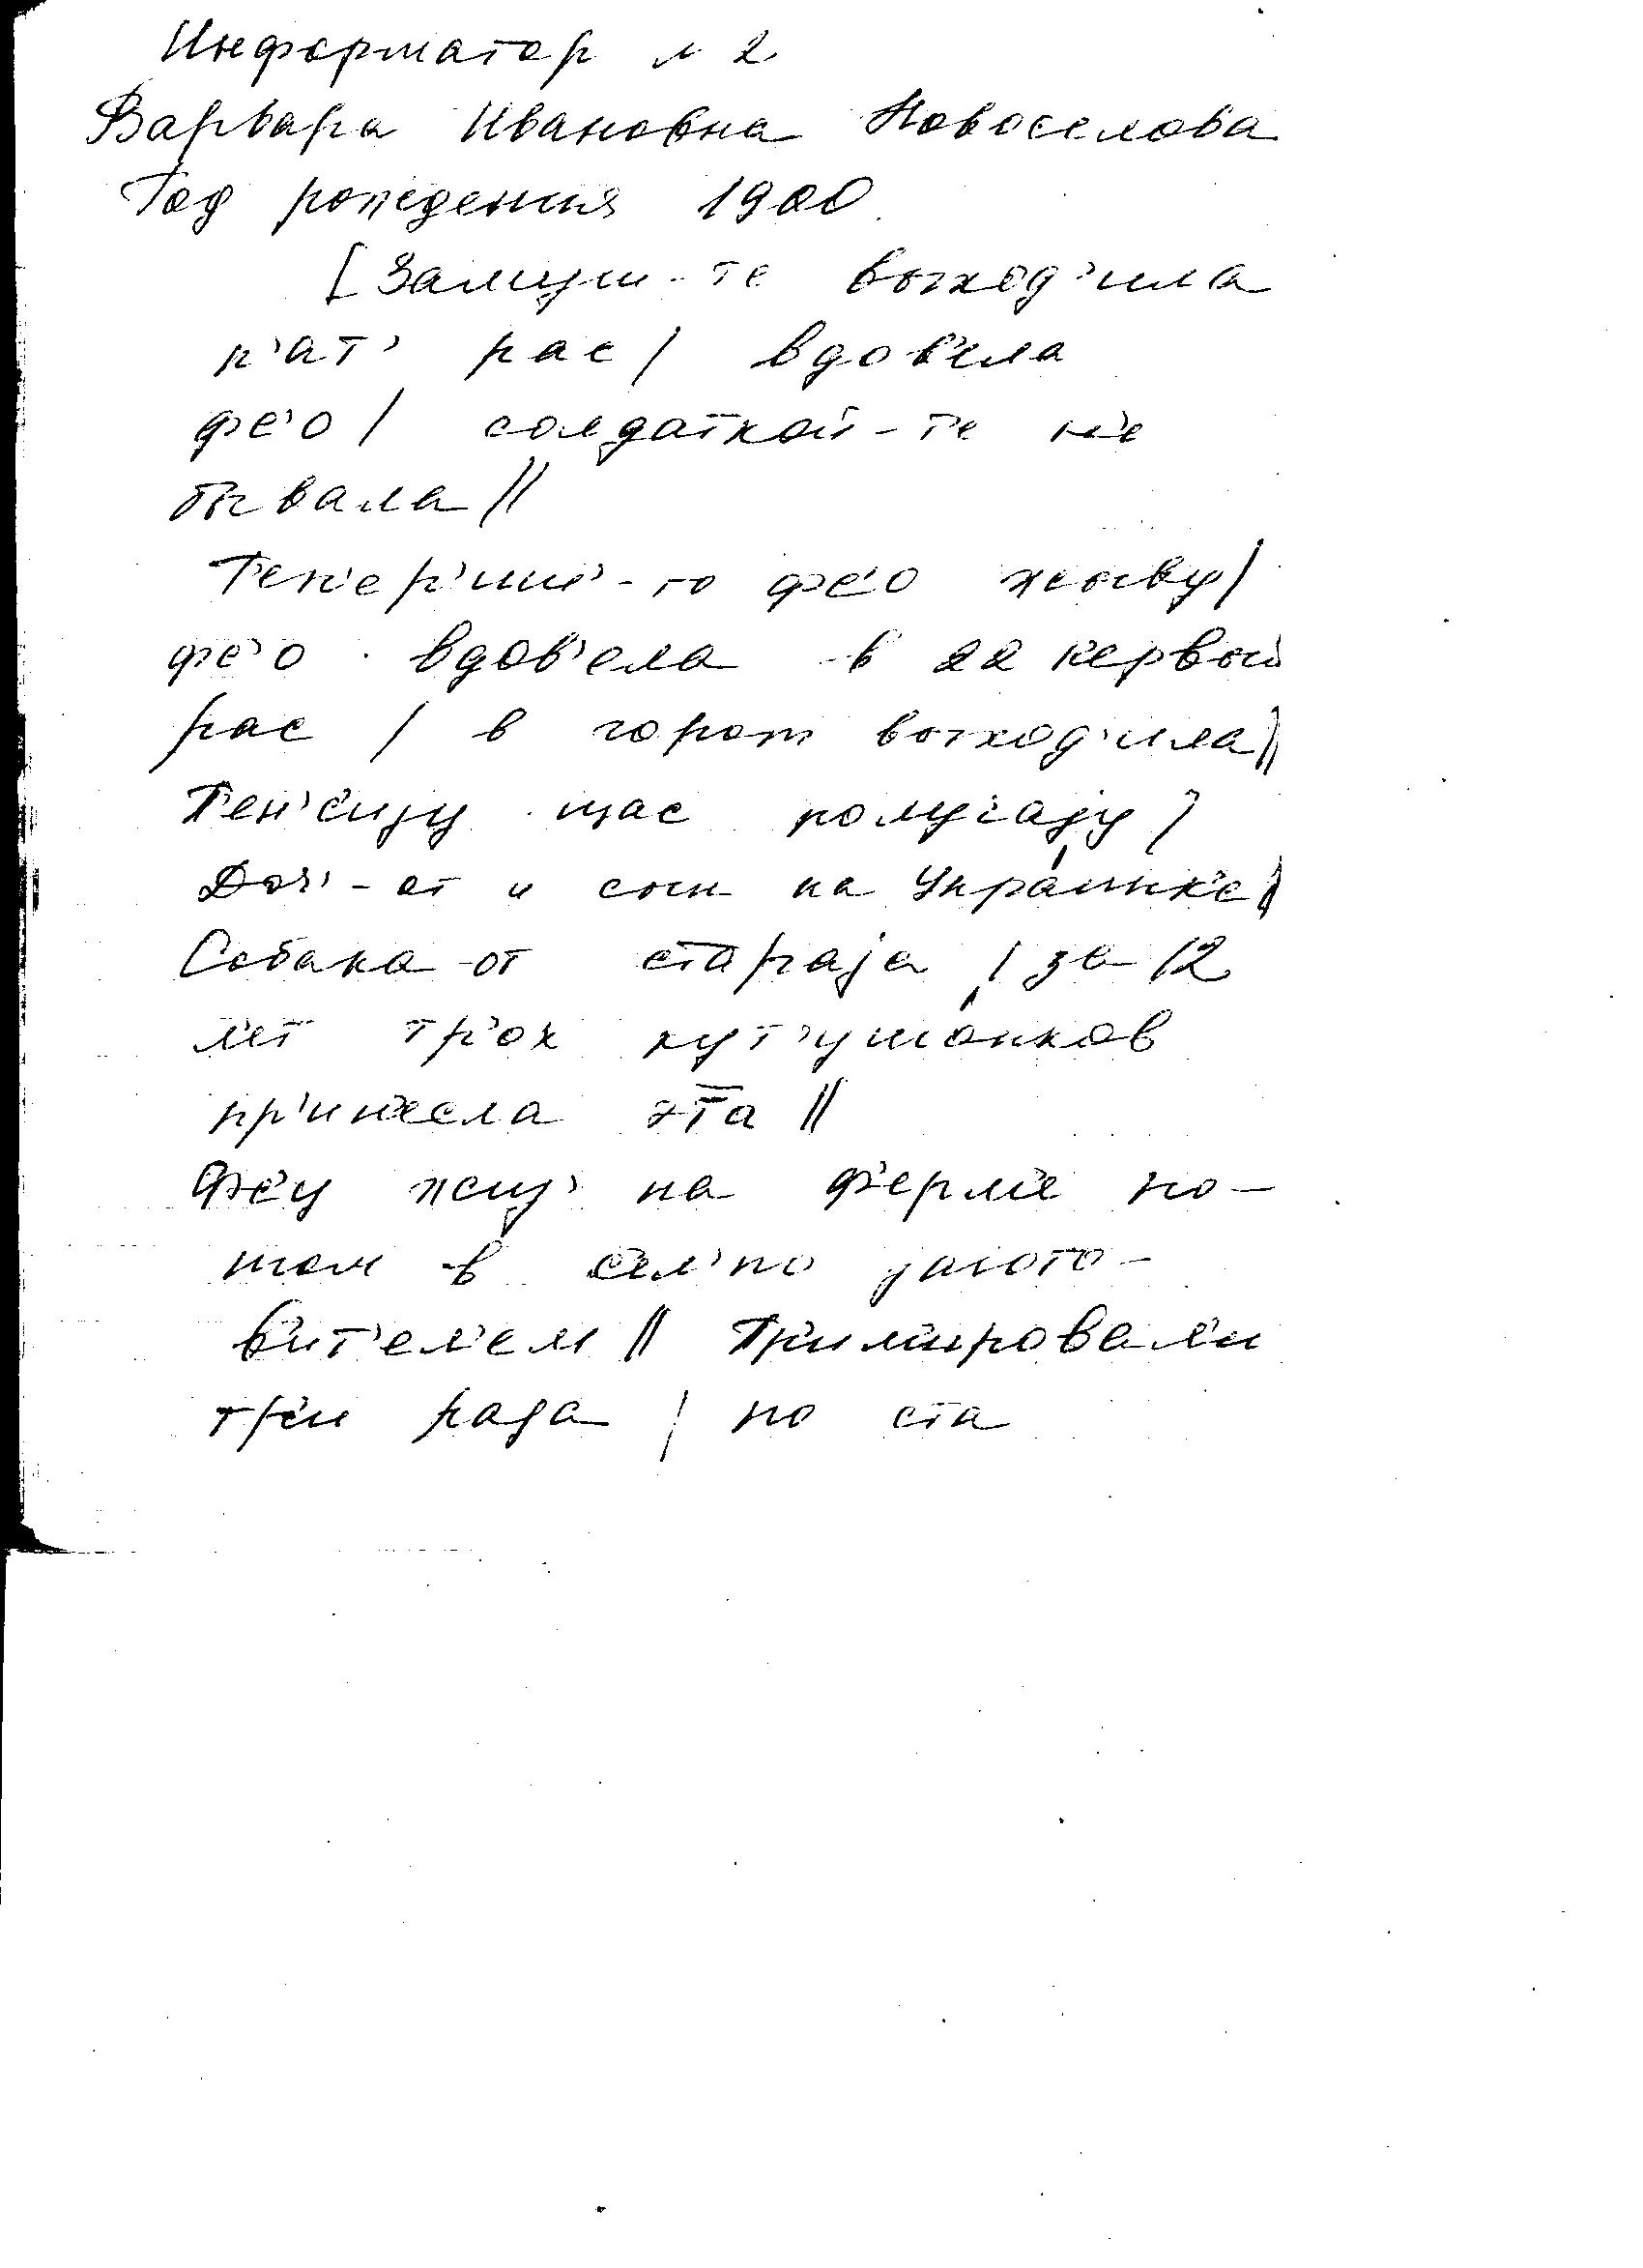 Информатор № 2
Варвара Ивановна Новоселова
Год рождения 1900
[Замуш-те выход'ила
п'ат' рас / вдов'ела
фс'о / солдаткой-те н'е
бывала //
Теп'ер'иш-то фс'о жыву /
фс'о вдов'ела в 22 первый
рас / в горот выход'ила //
П'ен'сиjу щас получаjу /
Доч'-от и сын на Украинк'е //
Собака-от стараjа / за 12
л'ет тр'ох кут'ушонков
пр'ин'есла эта //
Фс'у жыз' на ферм'е по-
том в сел'по загото-
в'ит'ел'ем // Пр'имировал'и
тр'и раза / по ста